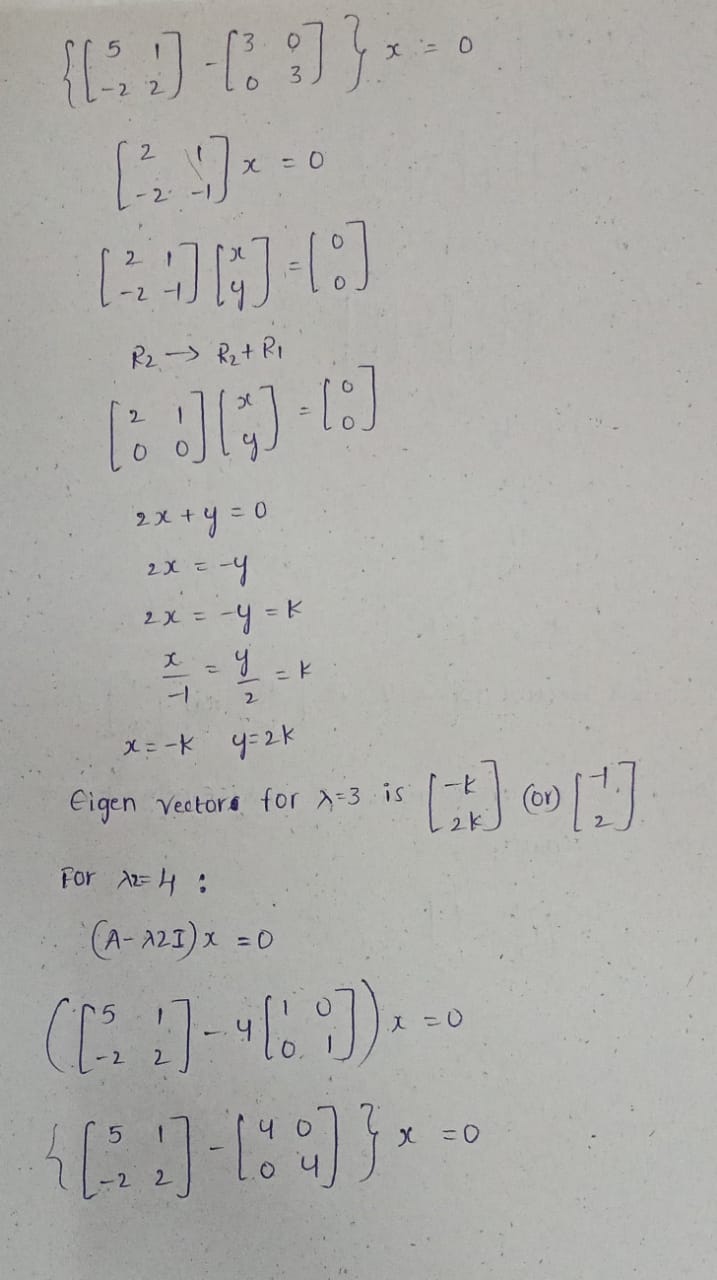 {[5 1 -2 2] - [3 0 0 3]} x = 0
[2 1 -2 -1] x = 0
[2 1 -2 -1] [x y] = [0 0]
R2 → R2 + R1
[2 1 0 0] [x y] = [0 0]
2x + y = 0
2x = -y
2x = -y = K
x/-1 = y/2 = K
x = -K y = 2K
Eigen vectors for λ=3 is [-K 2K] (or) [-1 2]
For λ2=4 :
(A - λ2I) x = 0
([5 1 -2 2] - 4[1 0 0 1]) x = 0
{[5 1 -2 2] - [4 0 0 4]} x = 0